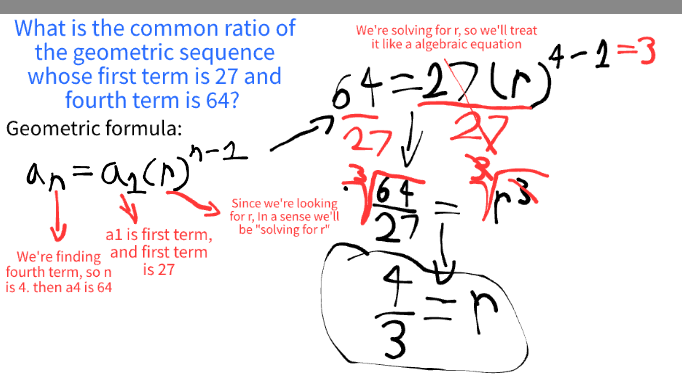 What is the common ratio of
the geometric sequence
whose first term is 27 and
fourth term is 64?
Geometric formula:
aₙ=a₁(r)ⁿ⁻¹
We're finding
fourth term, so n
is 4. then a4 is 64
a1 is first term,
and first term
is 27
Since we're looking
for r, In a sense we'll
be "solving for r"
We're solving for r, so we'll treat
it like a algebraic equation
64=27(r)⁴⁻¹=3
27 27
³√64/27 = ³√r³
4/3=r